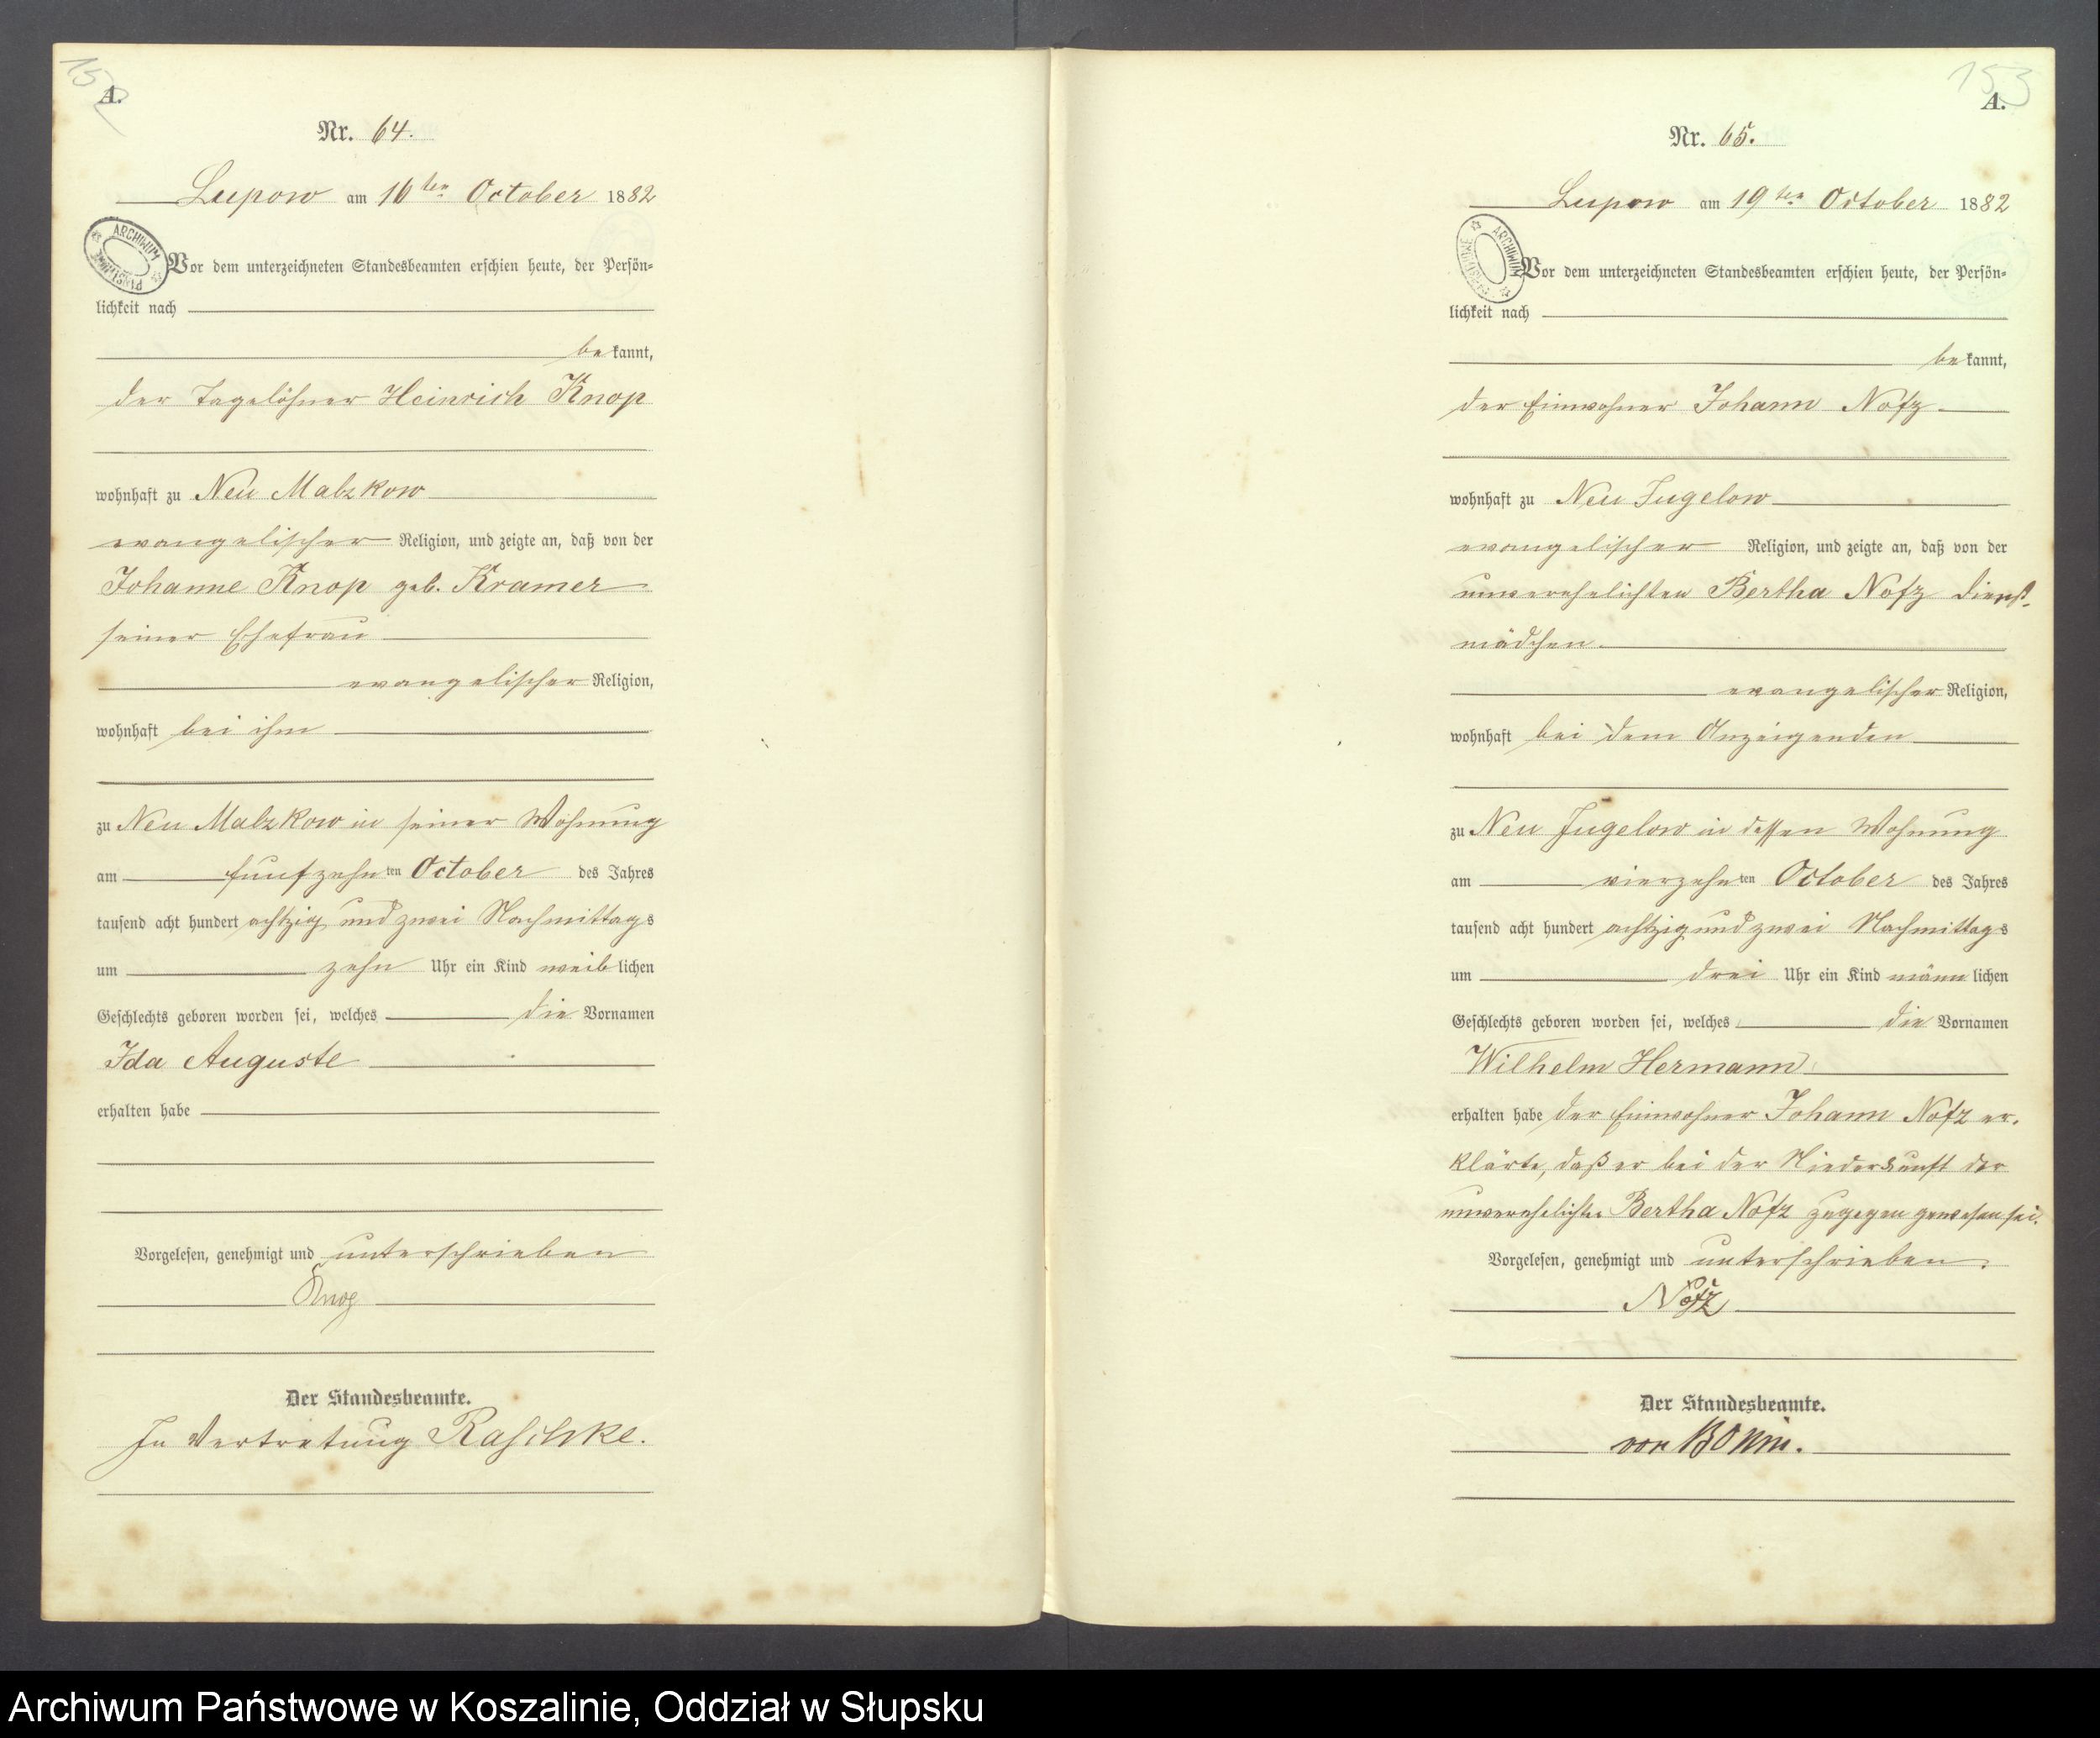 152
A.
Nr. 64.
Lupow am 16ten October 1882
ARCHIWUM PAŃSTWOWE
Vor dem unterzeichneten Standesbeamten erschien heute, der Persön-
lichkeit nach
bekannt,
der Tagelöhner Heinrich Knop
wohnhaft zu Neu Malzkow
evangelischer Religion, und zeigte an, daß von der
Johanne Knop geb. Kramer
seiner Ehefrau
evangelischer Religion,
wohnhaft bei ihm
zu Neu Malzkow in seiner Wohnung
am fünfzehnten October des Jahres
tausend acht hundert achtzig und zwei Nachmittags
um zehn Uhr ein Kind weiblichen
Geschlechts geboren worden sei, welches die Vornamen
Ida Auguste
erhalten habe
Vorgelesen, genehmigt und unterschrieben
Knop
Der Standesbeamte.
In Vertretung Raschke.
153
A.
Nr. 65.
Lupow am 19ten October 1882
ARCHIWUM PAŃSTWOWE
Vor dem unterzeichneten Standesbeamten erschien heute, der Persön-
lichkeit nach
bekannt,
der Einwohner Johann Nofz
wohnhaft zu Neu Jugelow
evangelischer Religion, und zeigte an, daß von der
unverehelichten Bertha Nofz Dienst-
mädchen.
evangelischer Religion,
wohnhaft bei dem Anzeigenden
zu Neu Jugelow in dessen Wohnung
am vierzehnten October des Jahres
tausend acht hundert achtzig und zwei Nachmittags
um drei Uhr ein Kind männlichen
Geschlechts geboren worden sei, welches die Vornamen
Wilhelm Hermann
erhalten habe der Einwohner Johann Nofz er-
klärte, daß er bei der Niederkunft der
unverehelichten Bertha Nofz zugegen gewesen sei.
Vorgelesen, genehmigt und unterschrieben.
Nofz
Der Standesbeamte.
von Bonin.
Archiwum Państwowe w Koszalinie, Oddział w Słupsku